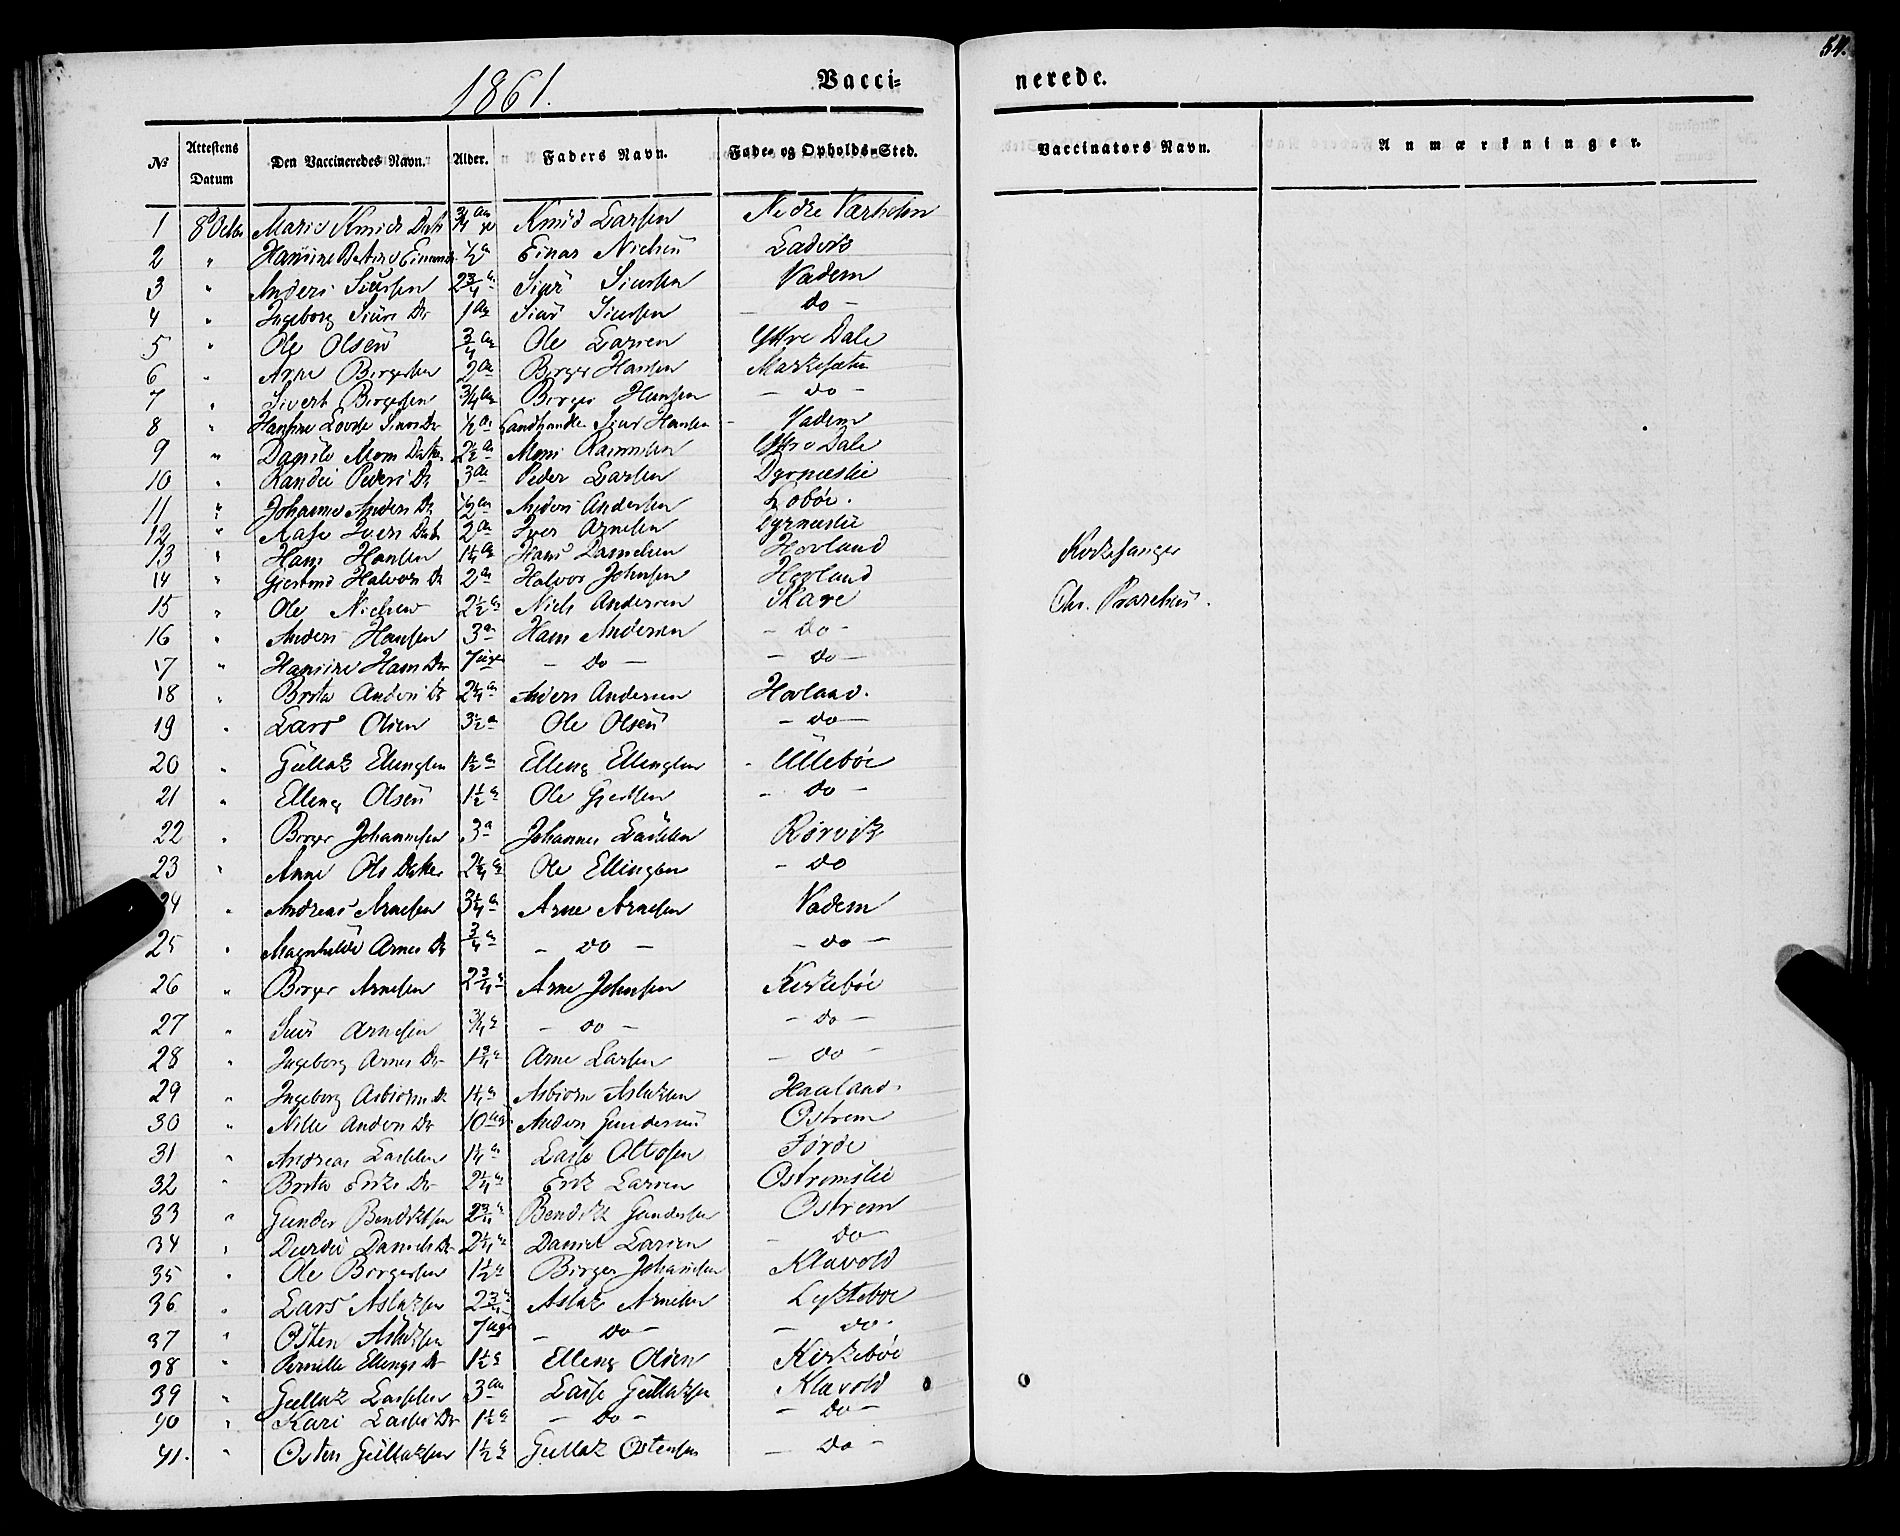 54.
1861.
Vacci- nerede.
No Attestens Datum Den Vaccineredes Navn. Alder. Faders Navn. Føde- og Opholds-Sted. Vaccinators Navn. Anmærkninger.
1 8 Octbr Marie Knuds Datr 3/4 Aar Knud Larsen Nedre
2 " Hansine 1/2 a Einar Nielsen Ladvik
3 " Anders Siursen 2 3/4 a Siur Siursen Vadem
4 " Ingeborg Siurs Dr 1 Aar Siur Siursen do -
5 " Ole Olsen 3/4 Aar Ole Larsen Yttre Dale
6 " Arne Birgersen 2 a Birger Hansen
7 " Sivert Birgersen 3/4 Aar Birger Hansen - do -
8 " Hansine Siurs Dr 1/2 a Landhandler Siur Hansen Vadem
9 " Mons Datter 2 1/2 a Mons Yttre Dale
10 " Randi Peders Dr 3 a Peder Larsen Dyrneslie
11 " Johanne Anders Dr 1/2 a Anders Andersen
12 " Aase Ivers Datr 2 a Iver Arnesen Dyrneslie
13 " Hans Hansen 1 1/4 a Hans Danielsen Hovland Kirkesanger
14 " Gjertrud Halvors Dr 2 a Halvor Johnsen Hovland
15 " Ole Nielsen 2 1/2 a Niels Andersen Skare Chr.
16 " Anders Hansen 3 a Hans Andersen - do -
17 " Hansine Hans Dr 7 Uger - do - - do -
18 " Brita Anders Dr 2 1/4 a Anders Andersen Hovland.
19 " Lars Olsen 3 1/2 a Ole Olsen - do -
20 " Gullak Ellingsen 1 1/2 a Elleng Ellengsen Ullebøe
21 " Elleng Olsen 1 1/2 a Ole Gjertsen - do -
22 " Birger Johannesen 3 a Johannes Lassesen Rørvik
23 " Anne Ols Datter 2 1/4 a Ole Ellingsen - do
24 " Andreas Arnesen 3 1/4 a Arne Arnesen Vadem
25 " Magnhilde Arnes Dr 3/4 a - do - - do -
26 " Birger Arnesen 2 3/4 a Arne Johnsen Kirkebøe
27 " Siur Arnesen 3/4 a - do - - do -
28 " Ingeborg Arnes Dr 1 3/4 a Arne Larsen - do -
29 " Ingeborg Asbiørns Dr 1 1/4 a Asbiørn Aslaksen Hauland.
30 " Nille Anders Dr 10 Anders Gundersen Østrem
31 " Andreas Lassesen 1 1/4 a Lasse Førde
32 " Brita Eriks Dr 2 1/4 a Erik Larsen Østremslie
33 " Gunder Bendiktsen 2 3/4 a Bendikt Gundersen Østrem
34 " Durdei Daniels Dr 2 1/4 a Daniel Larsen - do -
35 " Ole Birgersen 1 1/2 a Birger Johansen Klævold
36 " Lars Aslaksen 2 3/4 a Aslak Arnesen Lyktebøe
37 " Østen Aslaksen 7 Uger - do - - do -
38 " Pernille Ellengs Dr 1 1/2 a Elleng Olsen Kirkebøe
39 " Gullak Lassesen 3 Aar Lasse Gullaksen Klævold
40 " Kari Lasses Dr 1 1/2 a - do - - do -
41. " Østen Gullaksen 1 1/2 a Gullak Østensen - do -